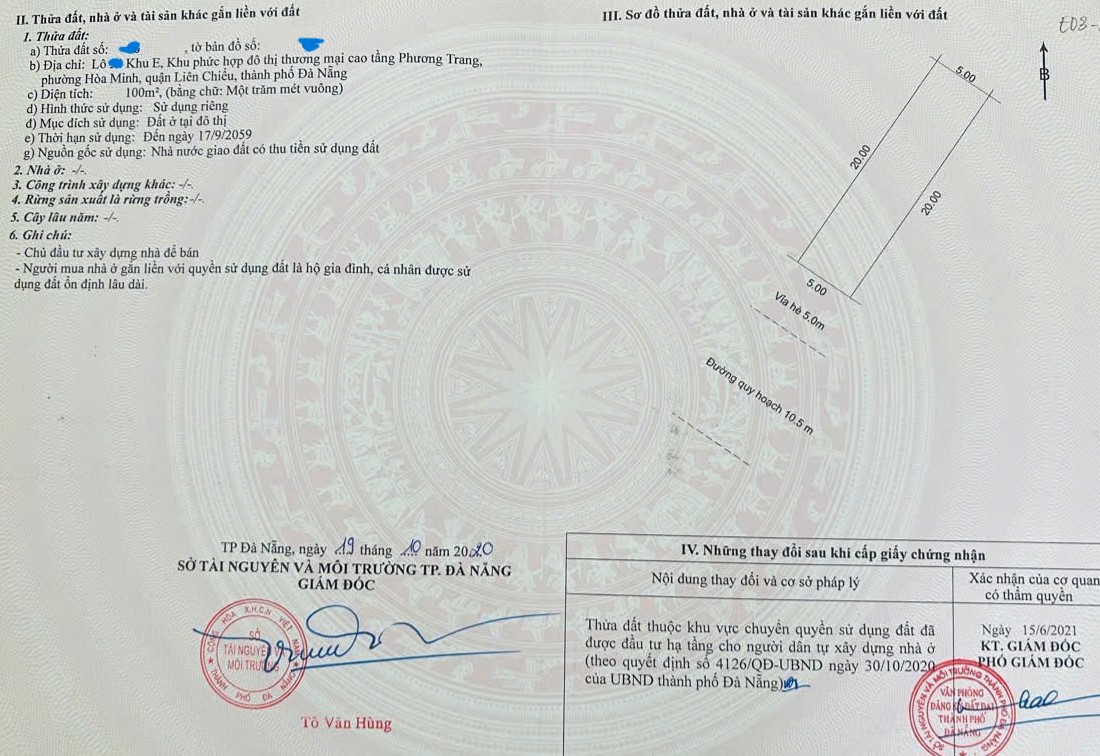 II. Thửa đất, nhà ở và tài sản khác gắn liền với đất
1. Thửa đất:
a) Thửa đất số: , tờ bản đồ số:
b) Địa chỉ: Lô Khu E, Khu phức hợp đô thị thương mại cao tầng Phương Trang,
phường Hòa Minh, quận Liên Chiểu, thành phố Đà Nẵng
c) Diện tích: 100m², (bằng chữ: Một trăm mét vuông)
d) Hình thức sử dụng: Sử dụng riêng
đ) Mục đích sử dụng: Đất ở tại đô thị
e) Thời hạn sử dụng: Đến ngày 17/9/2059
g) Nguồn gốc sử dụng: Nhà nước giao đất có thu tiền sử dụng đất
2. Nhà ở: -/-.
3. Công trình xây dựng khác: -/-.
4. Rừng sản xuất là rừng trồng:-/-.
5. Cây lâu năm: -/-.
6. Ghi chú:
- Chủ đầu tư xây dựng nhà để bán
- Người mua nhà ở gắn liền với quyền sử dụng đất là hộ gia đình, cá nhân được sử
dụng đất ổn định lâu dài.
TP Đà Nẵng, ngày 19 tháng 10 năm 2020
SỞ TÀI NGUYÊN VÀ MÔI TRƯỜNG TP. ĐÀ NẴNG
GIÁM ĐỐC
CỘNG HÒA X.H.C.N VIỆT NAM
SỞ
TÀI NGUYÊN
MÔI TRƯỜNG
THÀNH PHỐ ĐÀ NẴNG
Tô Văn Hùng
III. Sơ đồ thửa đất, nhà ở và tài sản khác gắn liền với đất
E03-
B
5.00
20.00
20.00
5.00
Vỉa hè 5.0m
Đường quy hoạch 10.5 m
IV. Những thay đổi sau khi cấp giấy chứng nhận
Nội dung thay đổi và cơ sở pháp lý
Xác nhận của cơ quan
có thẩm quyền
Thửa đất thuộc khu vực chuyển quyền sử dụng đất đã
được đầu tư hạ tầng cho người dân tự xây dựng nhà ở
(theo quyết định số 4126/QĐ-UBND ngày 30/10/2020
của UBND thành phố Đà Nẵng)
Ngày 15/6/2021
KT. GIÁM ĐỐC
PHÓ GIÁM ĐỐC
VĂN PHÒNG
ĐĂNG KÝ ĐẤT ĐAI
THÀNH PHỐ
ĐÀ NẴNG